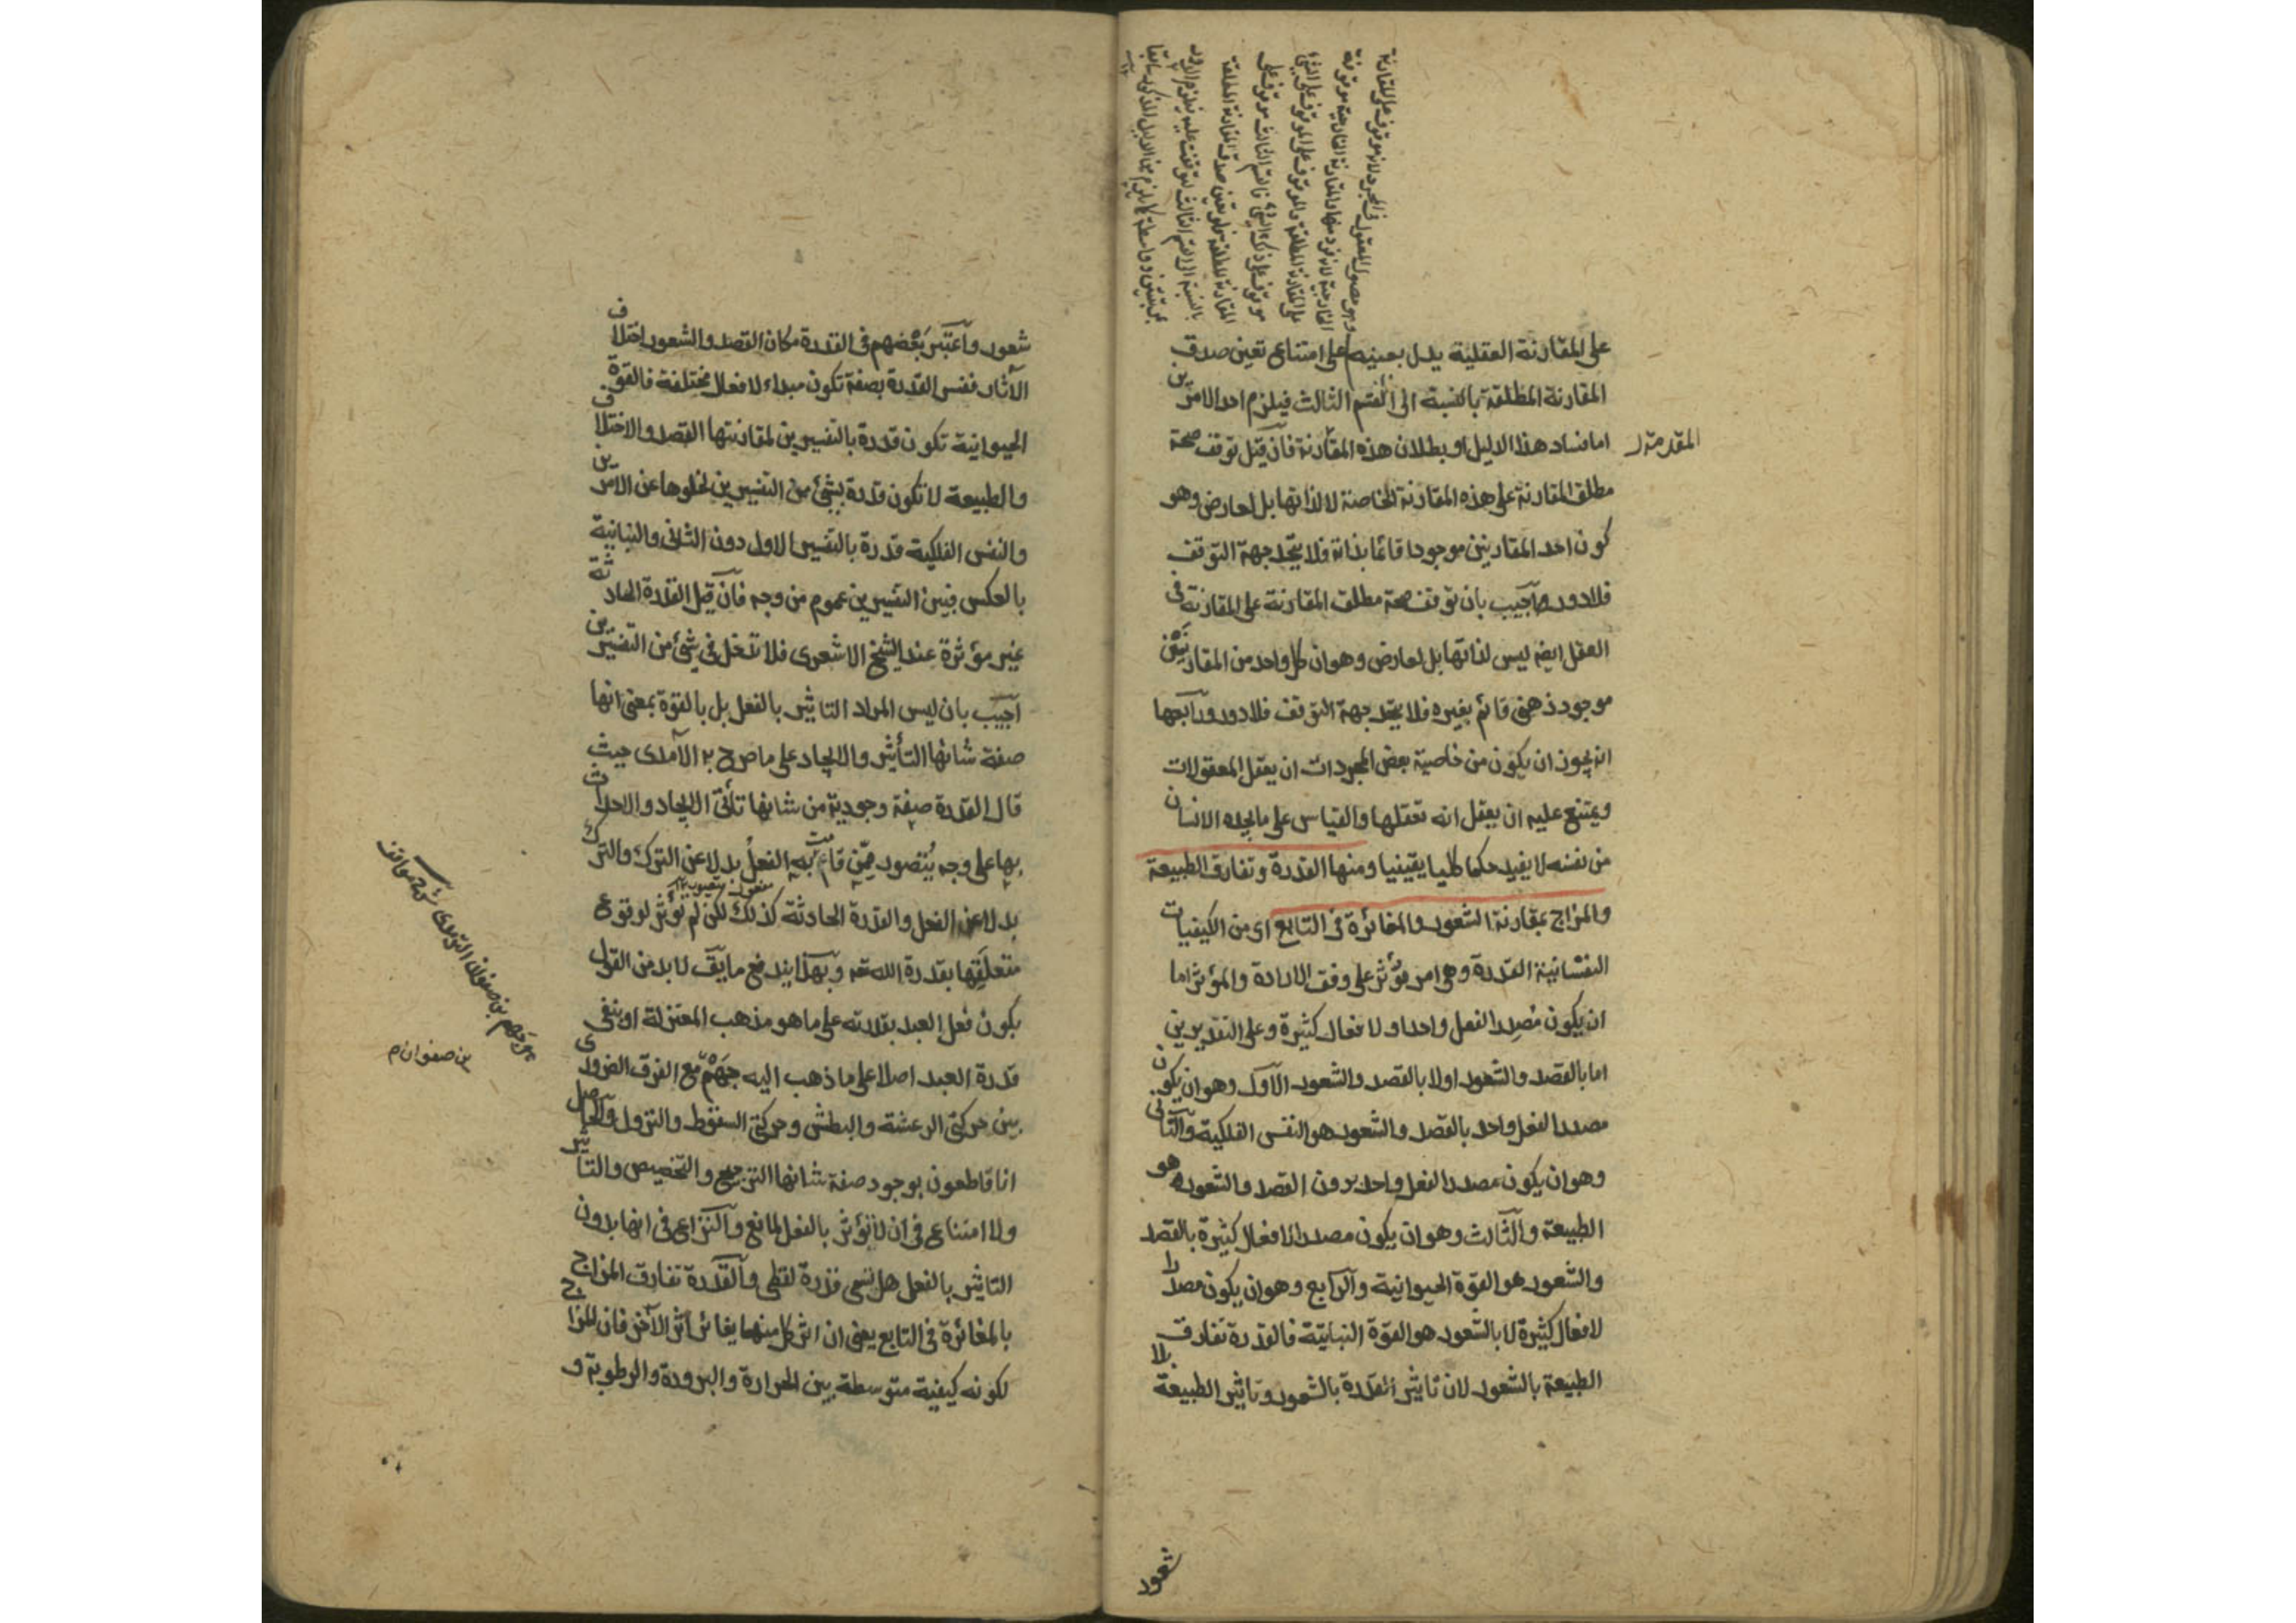 على المقارنة العقلية يدل بعينه على امتناع تعين صدق
المقارنة المطلقة بالنسبة الى القسم الثالث فيلزم احد الامرين
اما فساد هذا الدليل او بطلان هذه المقارنة فان قيل توقف صحة
المقدمة
مطلق المقارنة على هذه المقارنة الخاصة لا لذاتها بل لعارض وهو
كون احد المقارنين موجودا قائما بذاته فلا يتحد جهة التوقف
فلا دور واجيب بان توقف صحة مطلق المقارنة على المقارنة في
العقل ايضا ليس لذاتها بل لعارض وهو ان كل واحد من المقارنين
موجود ذهني قائم بغيره فلا يتحد جهة التوقف فلا دور ورابعها
انه يجوز ان يكون من خاصية بعض المجردات ان يعقل المعقولات
ويمتنع عليه ان يعقل انه تعقلها والقياس على ما يجده الانسان
من نفسه لا يفيد حكما كليا يقينيا ومنها القدرة وتفارق الطبيعة
والمزاج بمقارنة الشعور والمغائرة في التابع اى من الكيفيات
النفسانية القدرة وهى امر يؤثر على وفق الارادة والمؤثر اما
ان يكون مصدرا لفعل واحد او لافعال كثيرة وعلى التقديرين
اما بالقصد والشعور او لا بالقصد والشعور الاول وهو ان يكون
مصدرا لفعل واحد بالقصد والشعور هو النفس الفلكية والثانى
وهو ان يكون مصدرا لفعل واحد بدون القصد والشعور هو
الطبيعة والثالث وهو ان يكون مصدرا لافعال كثيرة بالقصد
والشعور هو القوة الحيوانية والرابع وهو ان يكون مصدرا
لافعال كثيرة لا بالشعور هو القوة النباتية فالقدرة تفارق
الطبيعة بالشعور لان تاثير القدرة بالشعور وتاثير الطبيعة بلا
شعور
شعور واعتبر بعضهم في القدرة مكان القصد والشعور اختلاف
الآثار ففسر القدرة بصفة تكون مبداء لافعال مختلفة فالقوة
الحيوانية تكون قدرة بالتفسيرين لمقارنتها القصد والاختلاف
والطبيعة لا تكون قدرة بشئ من التفسيرين لخلوها عن الامرين
والنفس الفلكية قدرة بالتفسير الاول دون الثانى والنباتية
بالعكس فبين التفسيرين عموم من وجه فان قيل القدرة الحادثة
غير مؤثرة عند الشيخ الاشعرى فلا تدخل في شئ من التفسيرين
اجيب بان ليس المراد التاثير بالفعل بل بالقوة بمعنى انها
صفة شانها التأثير والايجاد على ما صرح به الآمدى حيث
قال القدرة صفة وجودية من شانها تأتى الايجاد والاحداث
بها على وجه يتصور ممن قامت به الفعل بدلا عن الترك والترك
بدلا عن الفعل والقدرة الحادثة كذلك لكن لم تؤثر لوقوع
متعلقها بقدرة الله تعه وبهذا يندفع ما يق لا بد من القول
بكون فعل العبد بقدرته على ما هو مذهب المعتزلة او بنفى
قدرة العبد اصلا على ما ذهب اليه جهم مع الفرق الضرورى
بين حركتى الرعشة والبطش وحركتى السقوط والنزول والحاصل
انا قاطعون بوجود صفة شانها الترجيح والتخصيص والتاثير
ولا امتناع في ان لا تؤثر بالفعل لمانع والنزاع في انها بدون
التاثير بالفعل هل تسمى قدرة لفظى والقدرة تفارق المزاج
بالمغائرة في التابع يعنى ان اثر كل منهما يغائر اثر الآخر فان المزاج
لكونه كيفية متوسطة بين الحرارة والبرودة والرطوبة و
بن صفوان م